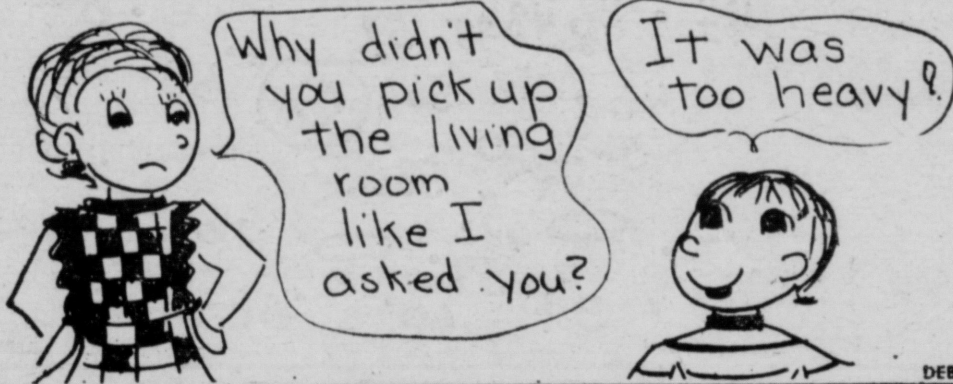 Why didn't
you pick up
the living
room
like I
asked you?
It was
too heavy?
DEB